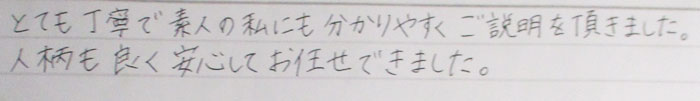 とても丁寧で素人の私にも分かりやすくご説明を頂きました。
人柄も良く安心してお任せできました。